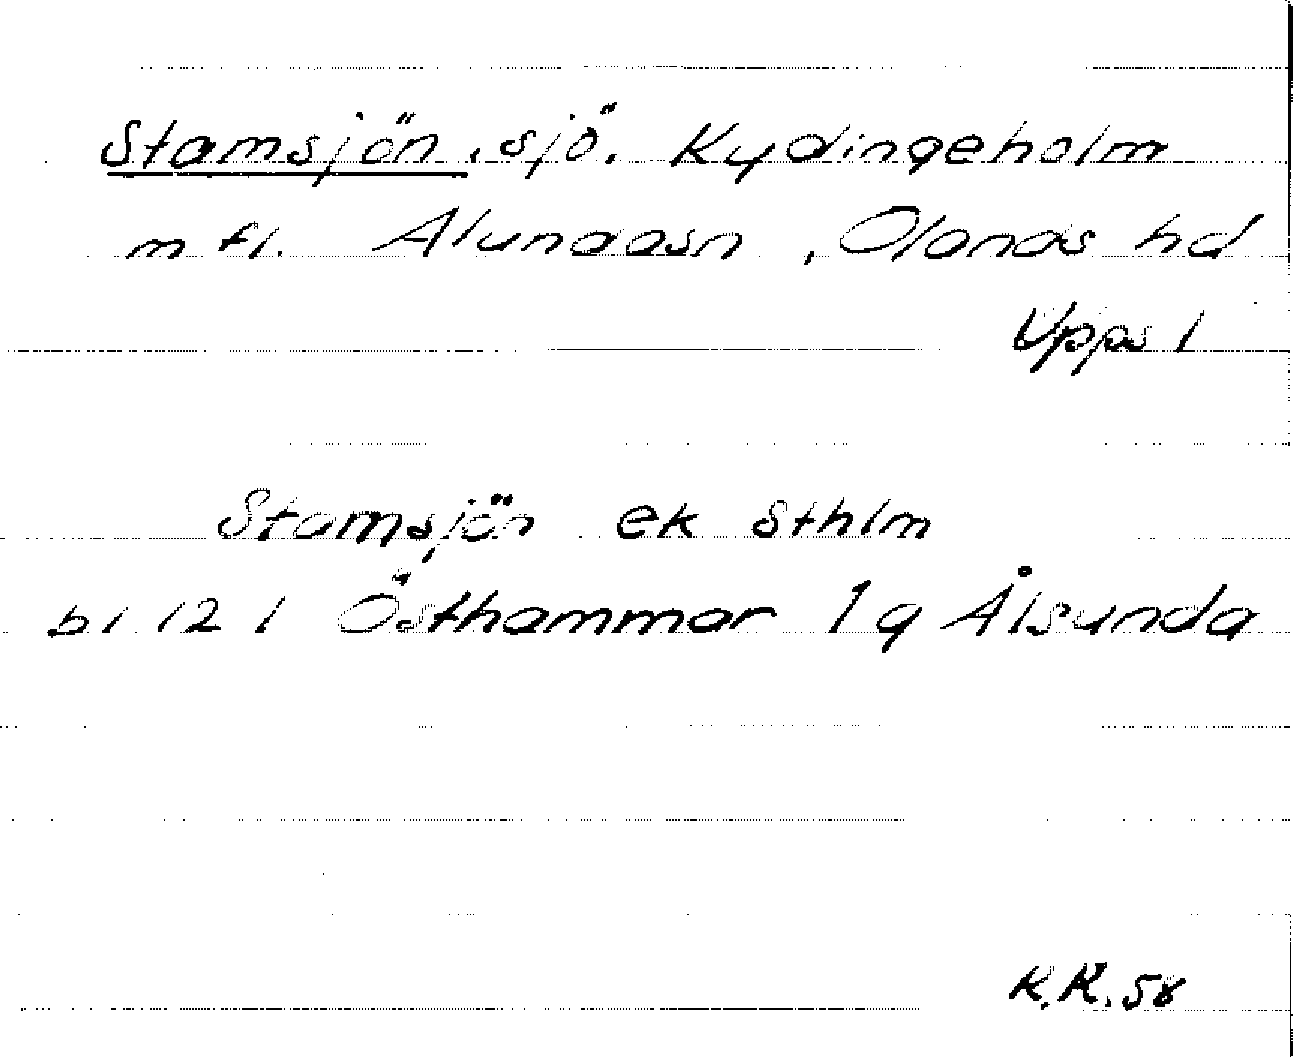 Stamsjön, sjö. Kydingeholm
m fl. Alundasn, Olands hd
Upps l
Stamsjön ek Sthlm
bl 121 Östhammar 1q Ålsunda
K.R.58